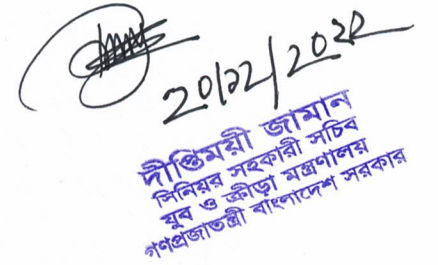 দীপ্তিময়ী জামান
সিনিয়র সহকারী সচিব
যুব ও ক্রীড়া মন্ত্রণালয়
গণপ্রজাতন্ত্রী বাংলাদেশ সরকার